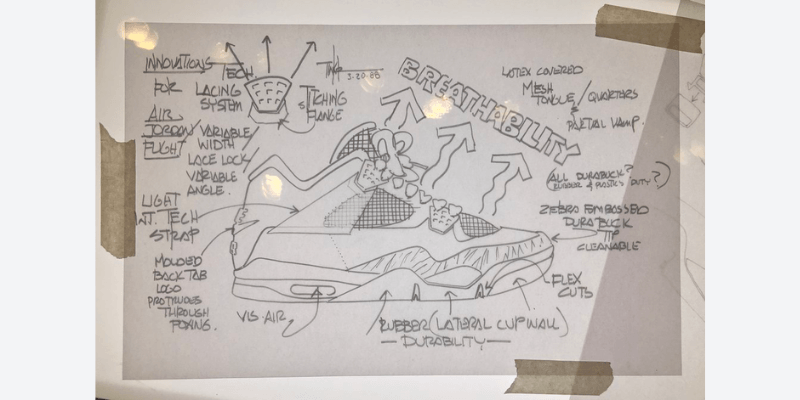 INNOVATIONS
FOR
AIR
JORDAN
FLIGHT
TECH
LACING
SYSTEM
VARIABLE
WIDTH
LACE LOCK/
VARIABLE
ANGLE.
STITCHING
FLANGE
3-20-88
BREATHABILITY
LOTEX COVERED
MESH
TONGUE / QUARTERS
&
PARTIAL VAMP.
(ALL DURABUCK?
RUBBER & PLASTICS DUTY?)
ZEBRA EMBOSSED
DURABUCK
TIP
CLEANABLE
LIGHT
WT. TECH
STRAP
MOLDED
BACK TAB
LOGO
PROTRUDES
THROUGH
FOXING.
VIS-AIR
RUBBER (LATERAL CUPWALL)
— DURABILITY —
FLEX
CUTS